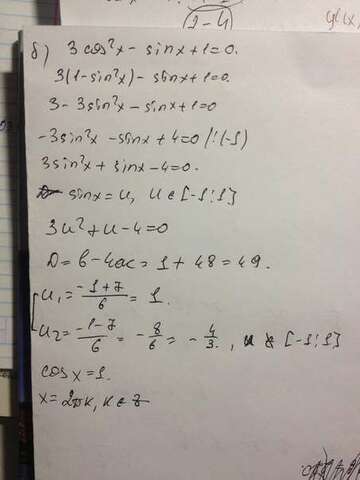 1-4
б) 3cos²x - sinx + 1 = 0.
3(1-sin²x) - sinx + 1 = 0.
3 - 3sin²x - sinx + 1 = 0
-3sin²x - sinx + 4 = 0 /:(-1)
3sin²x + sinx - 4 = 0.
sinx = u, u ∈ [-1;1]
3u² + u - 4 = 0
D = b - 4ac = 1 + 48 = 49.
u₁ = (-1+7)/6 = 1.
u₂ = (-1-7)/6 = -8/6 = -4/3. , u ∉ [-1;1]
cosx = 1.
x = 2πk, k ∈ z